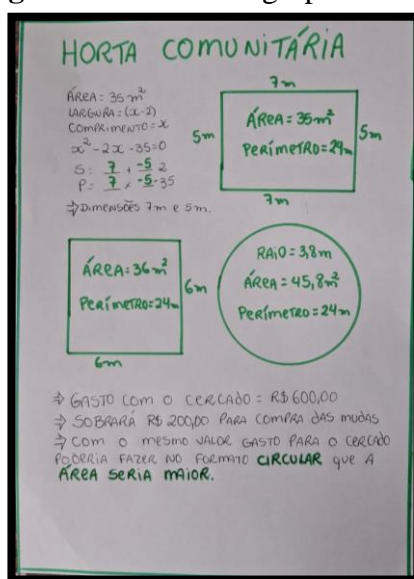 HORTA COMUNITÁRIA
ÁREA = 35 m²
LARGURA = (x-2)
COMPRIMENTO = x
x² - 2x - 35 = 0
S: 7 + -5 2
P: 7 x -5 -35
⇒ DIMENSÕES 7m e 5m.
7m
5m
ÁREA = 35m²
PERÍMETRO = 24m
5m
7m
ÁREA = 36m²
PERÍMETRO = 24m
6m
6m
RAIO = 3,8m
ÁREA = 45,8m²
PERÍMETRO = 24m
⇒ GASTO COM O CERCADO = R$ 600,00
⇒ SOBRARÁ R$ 200,00 PARA COMPRA DAS MUDAS
⇒ COM O MESMO VALOR GASTO PARA O CERCADO
PODERIA FAZER NO FORMATO CIRCULAR QUE A
ÁREA SERIA MAIOR.